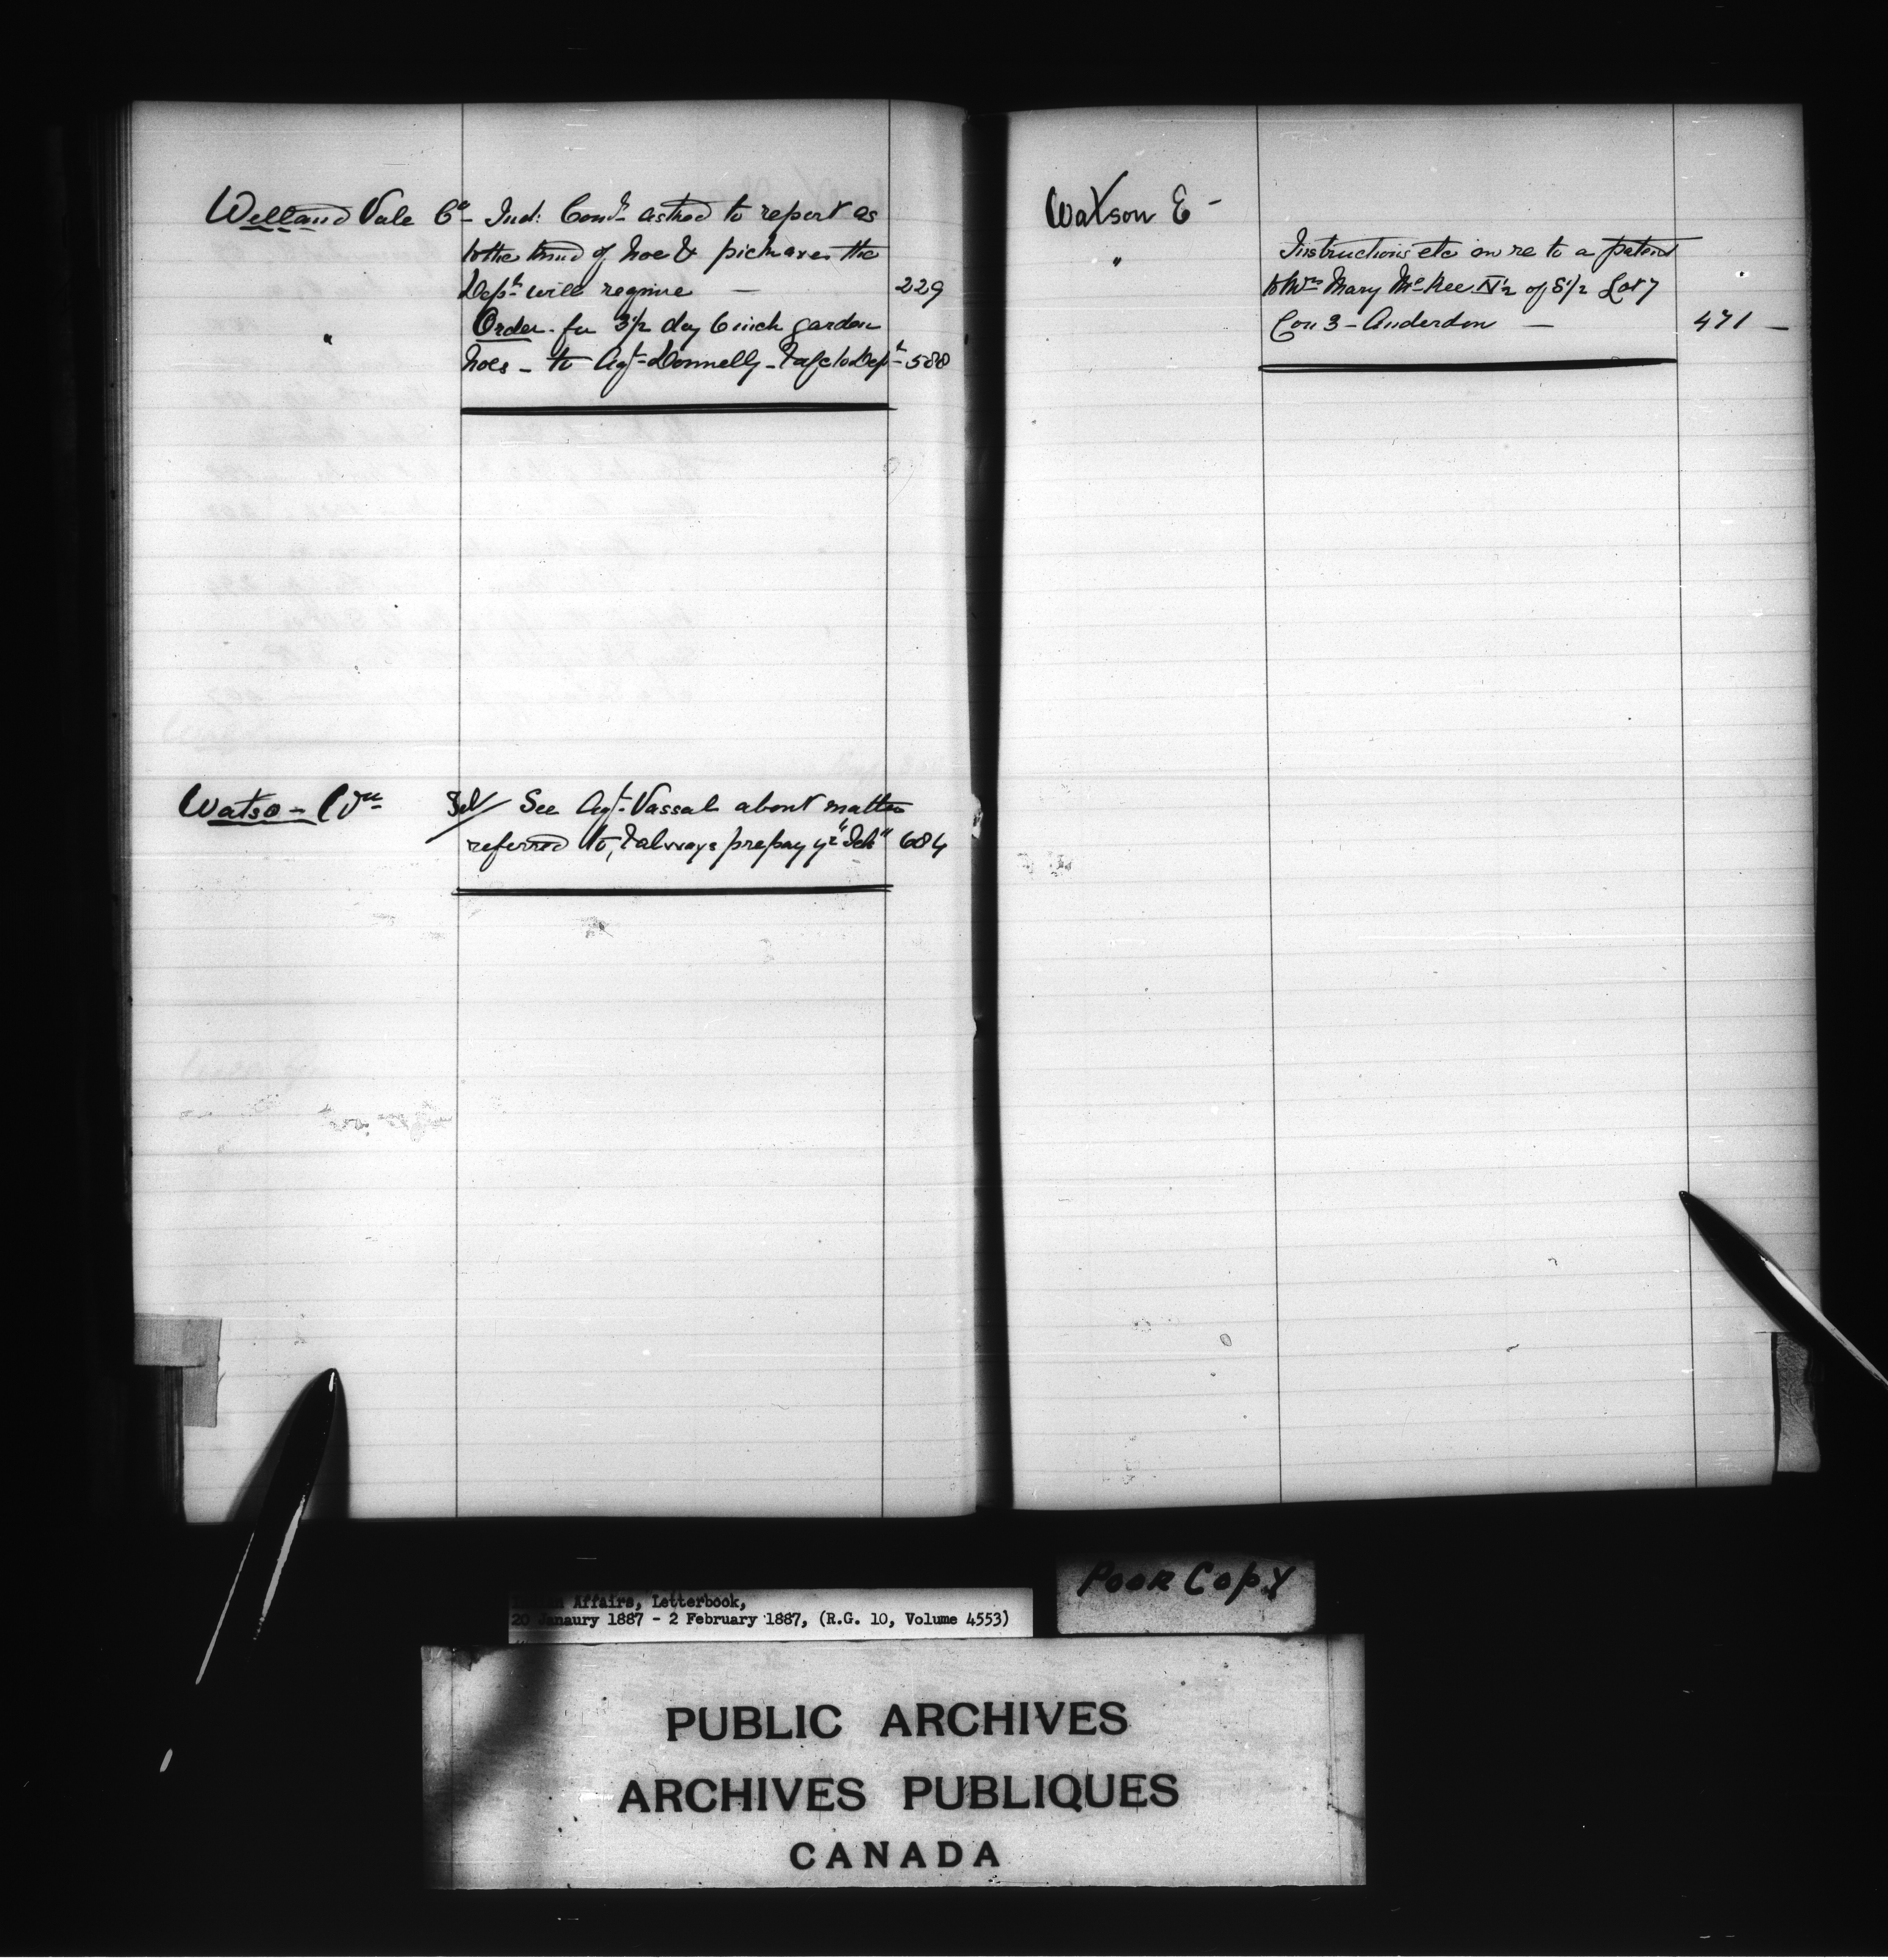 Welland Vale Co - Ind: Comr asked to report as
to the kind of hoe & pickaxes the
Dept will require — 229
" Order for 3½ doz 6 inch garden
hoes - to Agt Donnelly - & a/c to Dept - 500
Watso - Wm Tel/ See Agt Vassal about matter
referred to, & always prepay yr "Tels" 684
Watson E -
" Instructions etc in re to a patent
to Mrs Mary McKee N½ of S½ Lot 7
Con 3 - Anderdon — 471 —
Poor Copy
Affairs, Letterbook,
20 Janaury 1887 - 2 February 1887, (R.G. 10, Volume 4553)
PUBLIC ARCHIVES
ARCHIVES PUBLIQUES
CANADA